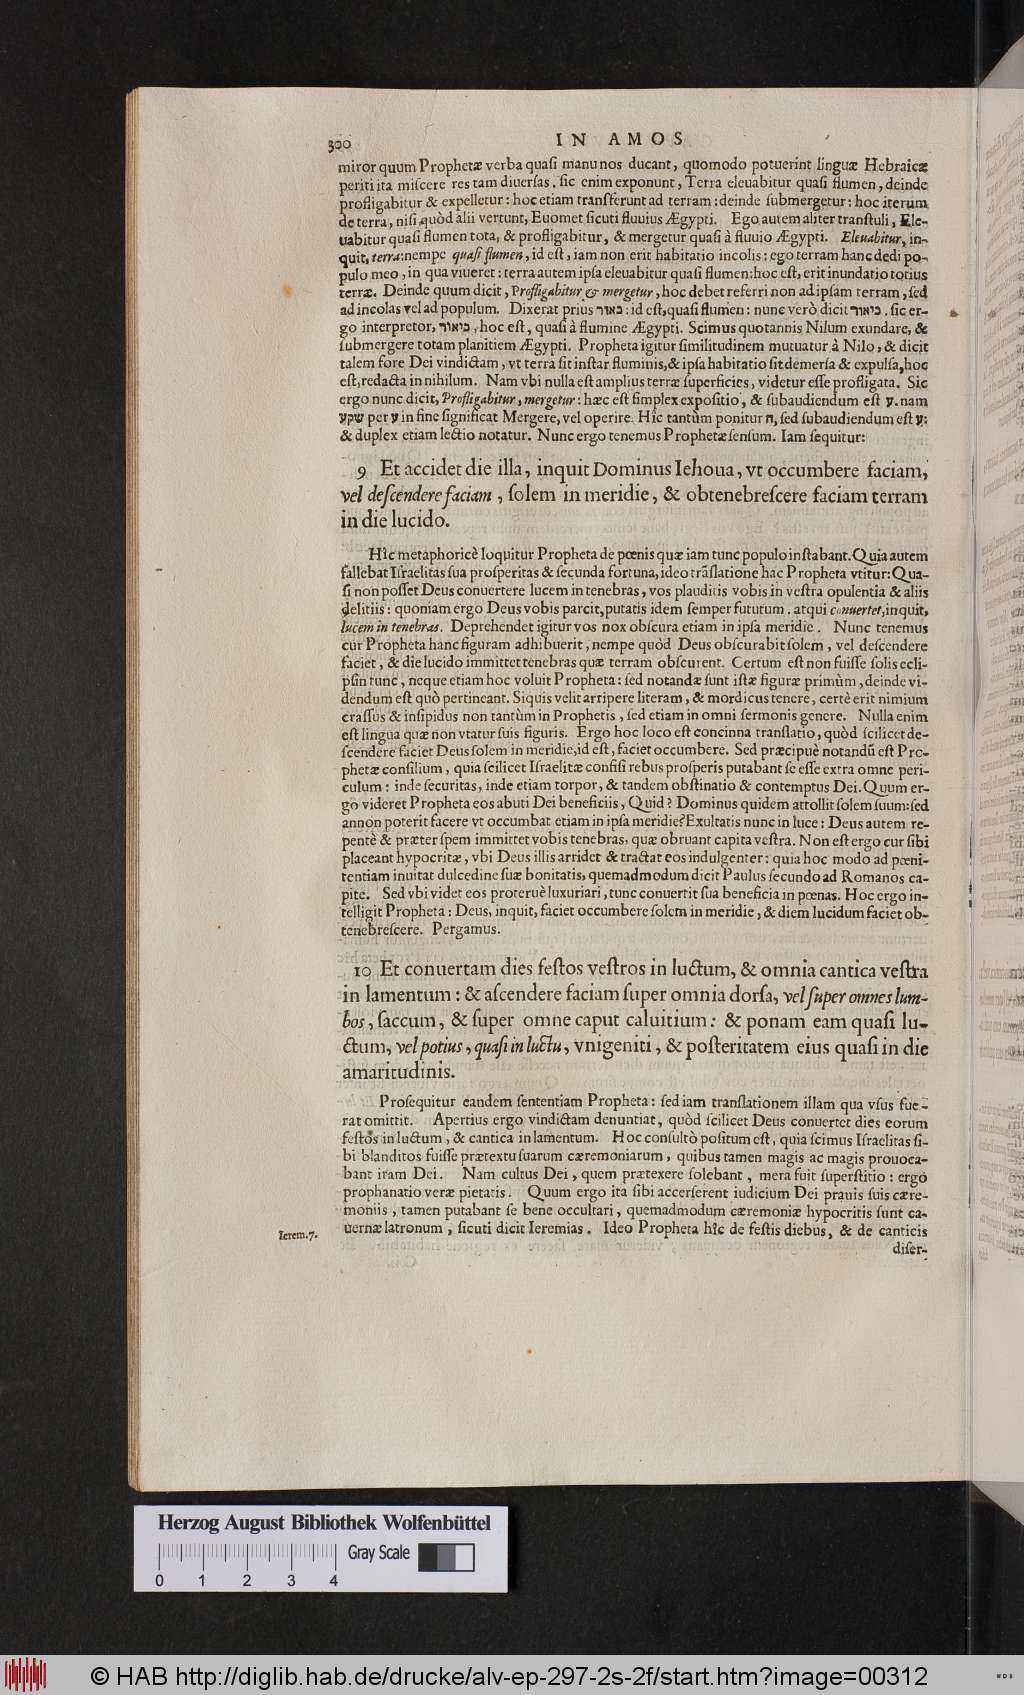 300 IN AMOS
miror quum Prophetæ verba quasi manu nos ducant, quomodo potuerint linguæ Hebraicæ
periti ita miscere res tam diuersas. sic enim exponunt, Terra eleuabitur quasi flumen, deinde
profligabitur & expelletur: hoc etiam transferunt ad terram: deinde submergetur: hoc iterum
de terra, nisi quòd alii vertunt, Euomet sicuti fluuius Ægypti. Ego autem aliter transtuli, Ele-
uabitur quasi flumen tota, & profligabitur, & mergetur quasi à fluuio Ægypti. Eleuabitur, in-
quit, terra: nempe quasi flumen, id est, iam non erit habitatio incolis: ego terram hanc dedi po-
pulo meo, in qua viueret: terra autem ipsa eleuabitur quasi flumen: hoc est, erit inundatio totius
terræ. Deinde quum dicit, Profligabitur & mergetur, hoc debet referri non ad ipsam terram, sed
ad incolas vel ad populum. Dixerat prius כאור: id est, quasi flumen: nunc verò dicit כיאור. sic er-
go interpretor, כיאור, hoc est, quasi à flumine Ægypti. Scimus quotannis Nilum exundare, &
submergere totam planitiem Ægypti. Propheta igitur similitudinem mutuatur à Nilo, & dicit
talem fore Dei vindictam, vt terra sit instar fluminis, & ipsa habitatio sit demersa & expulsa, hoc
est, redacta in nihilum. Nam vbi nulla est amplius terræ superficies, videtur esse profligata. Sic
ergo nunc dicit, Profligabitur, mergetur: hæc est simplex expositio, & subaudiendum est ע. nam
שקע per ע in fine significat Mergere, vel operire. Hîc tantùm ponitur ח, sed subaudiendum est ע:
& duplex etiam lectio notatur. Nunc ergo tenemus Prophetæ sensum. Iam sequitur:
9 Et accidet die illa, inquit Dominus Iehoua, vt occumbere faciam,
vel descendere faciam, solem in meridie, & obtenebrescere faciam terram
in die lucido.
Hîc metaphoricè loquitur Propheta de pœnis quæ iam tunc populo instabant. Quia autem
fallebat Israelitas sua prosperitas & secunda fortuna, ideo trãslatione hac Propheta vtitur: Qua-
si non posset Deus conuertere lucem in tenebras, vos plauditis vobis in vestra opulentia & aliis
delitiis: quoniam ergo Deus vobis parcit, putatis idem semper futurum. atqui conuertet, inquit,
lucem in tenebras. Deprehendet igitur vos nox obscura etiam in ipsa meridie. Nunc tenemus
cur Propheta hanc figuram adhibuerit, nempe quòd Deus obscurabit solem, vel descendere
faciet, & die lucido immittet tenebras quæ terram obscurent. Certum est non fuisse solis ecli-
psin tunc, neque etiam hoc voluit Propheta: sed notandæ sunt istæ figuræ primùm, deinde vi-
dendum est quò pertineant. Siquis velit arripere literam, & mordicus tenere, certè erit nimium
crassus & insipidus non tantùm in Prophetis, sed etiam in omni sermonis genere. Nulla enim
est lingua quæ non vtatur suis figuris. Ergo hoc loco est concinna translatio, quòd scilicet de-
scendere faciet Deus solem in meridie, id est, faciet occumbere. Sed præcipuè notandũ est Pro-
phetæ consilium, quia scilicet Israelitæ confisi rebus prosperis putabant se esse extra omne peri-
culum: inde securitas, inde etiam torpor, & tandem obstinatio & contemptus Dei. Quum er-
go videret Propheta eos abuti Dei beneficiis, Quid? Dominus quidem attollit solem suum: sed
annon poterit facere vt occumbat etiam in ipsa meridie? Exultatis nunc in luce: Deus autem re-
pentè & præter spem immittet vobis tenebras, quæ obruant capita vestra. Non est ergo cur sibi
placeant hypocritæ, vbi Deus illis arridet & tractat eos indulgenter: quia hoc modo ad pœni-
tentiam inuitat dulcedine suæ bonitatis, quemadmodum dicit Paulus secundo ad Romanos ca-
pite. Sed vbi videt eos proteruè luxuriari, tunc conuertit sua beneficia in pœnas. Hoc ergo in-
telligit Propheta: Deus, inquit, faciet occumbere solem in meridie, & diem lucidum faciet ob-
tenebrescere. Pergamus.
10 Et conuertam dies festos vestros in luctum, & omnia cantica vestra
in lamentum: & ascendere faciam super omnia dorsa, vel super omnes lum-
bos, saccum, & super omne caput caluitium: & ponam eam quasi lu-
ctum, vel potius, quasi in luctu, vnigeniti, & posteritatem eius quasi in die
amaritudinis.
Prosequitur eandem sententiam Propheta: sed iam translationem illam qua vsus fue-
rat omittit. Apertius ergo vindictam denuntiat, quòd scilicet Deus conuertet dies eorum
festos in luctum, & cantica in lamentum. Hoc consultò positum est, quia scimus Israelitas si-
bi blanditos fuisse prætextu suarum cæremoniarum, quibus tamen magis ac magis prouoca-
bant iram Dei. Nam cultus Dei, quem prætexere solebant, mera fuit superstitio: ergo
prophanatio veræ pietatis. Quum ergo ita sibi accerserent iudicium Dei prauis suis cære-
moniis, tamen putabant se bene occultari, quemadmodum cæremoniæ hypocritis sunt ca-
uernæ latronum, sicuti dicit Ieremias. Ideo Propheta hîc de festis diebus, & de canticis
Ierem.7.
diser-
Herzog August Bibliothek Wolfenbüttel
Gray Scale
0 1 2 3 4
© HAB http://diglib.hab.de/drucke/alv-ep-297-2s-2f/start.htm?image=00312